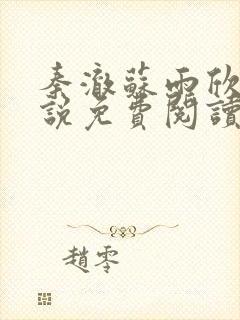 秦澈蘇雨欣
說免費閱讀
趙零